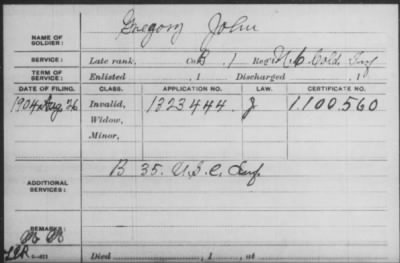 Gregory John
NAME OF SOLDIER:
SERVICE: Late rank, Co. B, 1 Reg't N.C. Cold. Inf
TERM OF SERVICE: Enlisted , 1 Discharged , 1
DATE OF FILING. CLASS. APPLICATION NO. LAW. CERTIFICATE NO.
1904 Aug 26 Invalid, 1323444. J 1.100.560
Widow,
Minor,
B 35. U.S.C. Inf.
ADDITIONAL SERVICES:
REMARKS:
Died , 1 , at